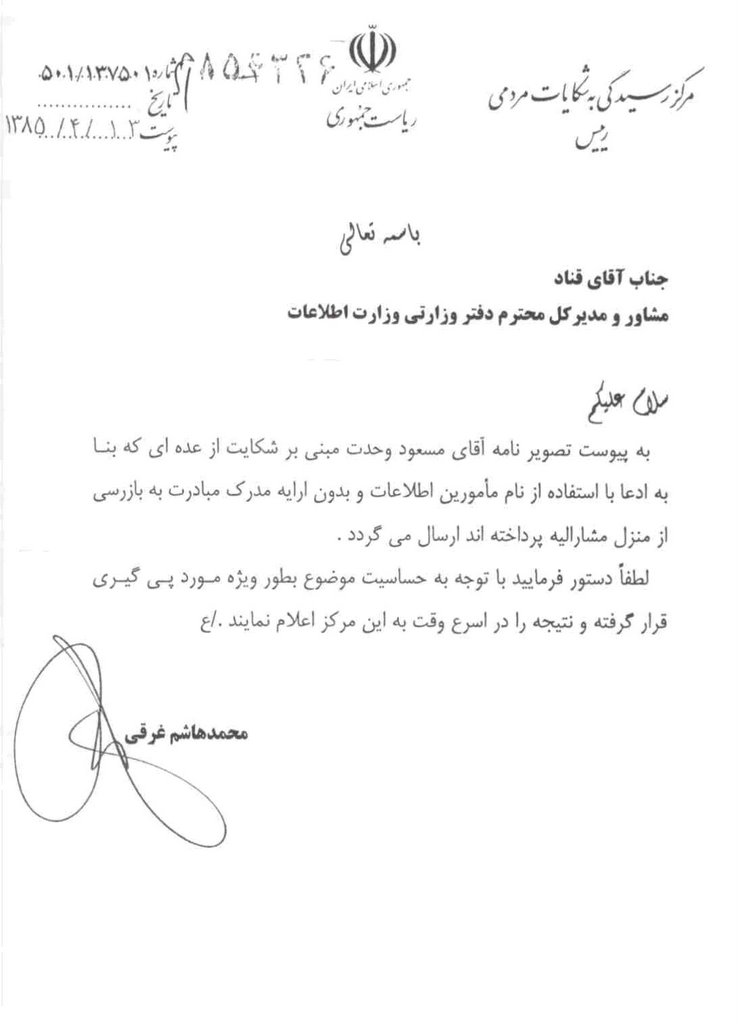 مرکز رسیدگی به شکایات مردمی
رییس
جمهوری اسلامی ایران
ریاست جمهوری
شماره ۵۰۱/۱۳۷۵۰۱
تاریخ
پیوست ۱۳۸۵/۴/۱۳
باسمه تعالی
جناب آقای قناد
مشاور و مدیرکل محترم دفتر وزارتی وزارت اطلاعات
سلام علیکم
به پیوست تصویر نامه آقای مسعود وحدت مبنی بر شکایت از عده ای که بنا
به ادعا با استفاده از نام مأمورین اطلاعات و بدون ارایه مدرک مبادرت به بازرسی
از منزل مشارالیه پرداخته اند ارسال می گردد .
لطفاً دستور فرمایید با توجه به حساسیت موضوع بطور ویژه مورد پی گیری
قرار گرفته و نتیجه را در اسرع وقت به این مرکز اعلام نمایند ./ع
محمدهاشم غرقی